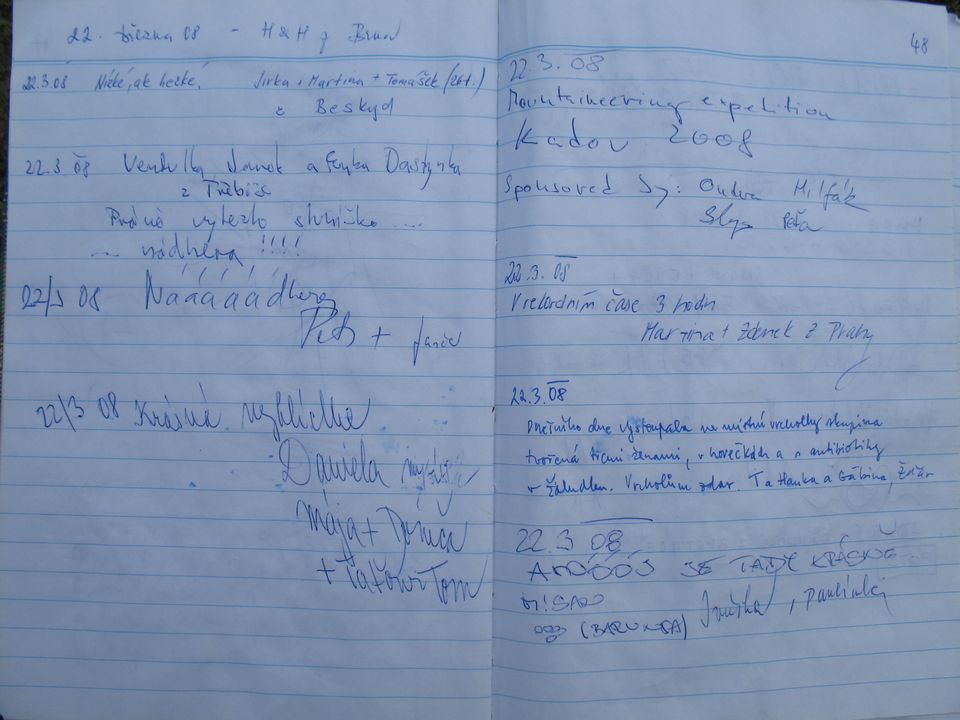 22. března 08 - H & H z Brna
22.3.08 Nízké, ale hezké! Jirka + Martina + Tomášek
z Beskyd
22.3 08 Vendulka, a
z Třebíče
vylezlo sluníčko ....
... nádhera !!!!
22/3 08 Nááááádhera
Petr +
22/3 08 Krásná vyhlídka
Daniela
Mája +
+ Tom
48
22.3.08
Mountaineering expedition
Kadov 2008
Sponsored by: Ondra Milfák
Péťa
22.3.08
V rekordním čase 3 hodin
Martina + Zdenek z Prahy
22.3.08
Dnešního dne vystoupala na místní vrcholky skupina
tvořená třemi ženami, v horečkách a s antibiotiky
v žaludku. Vrcholům zdar. Hanka a Gábina, Žďár
22.3 08
JE TADY KRÁSNĚ
(BARUNKA)